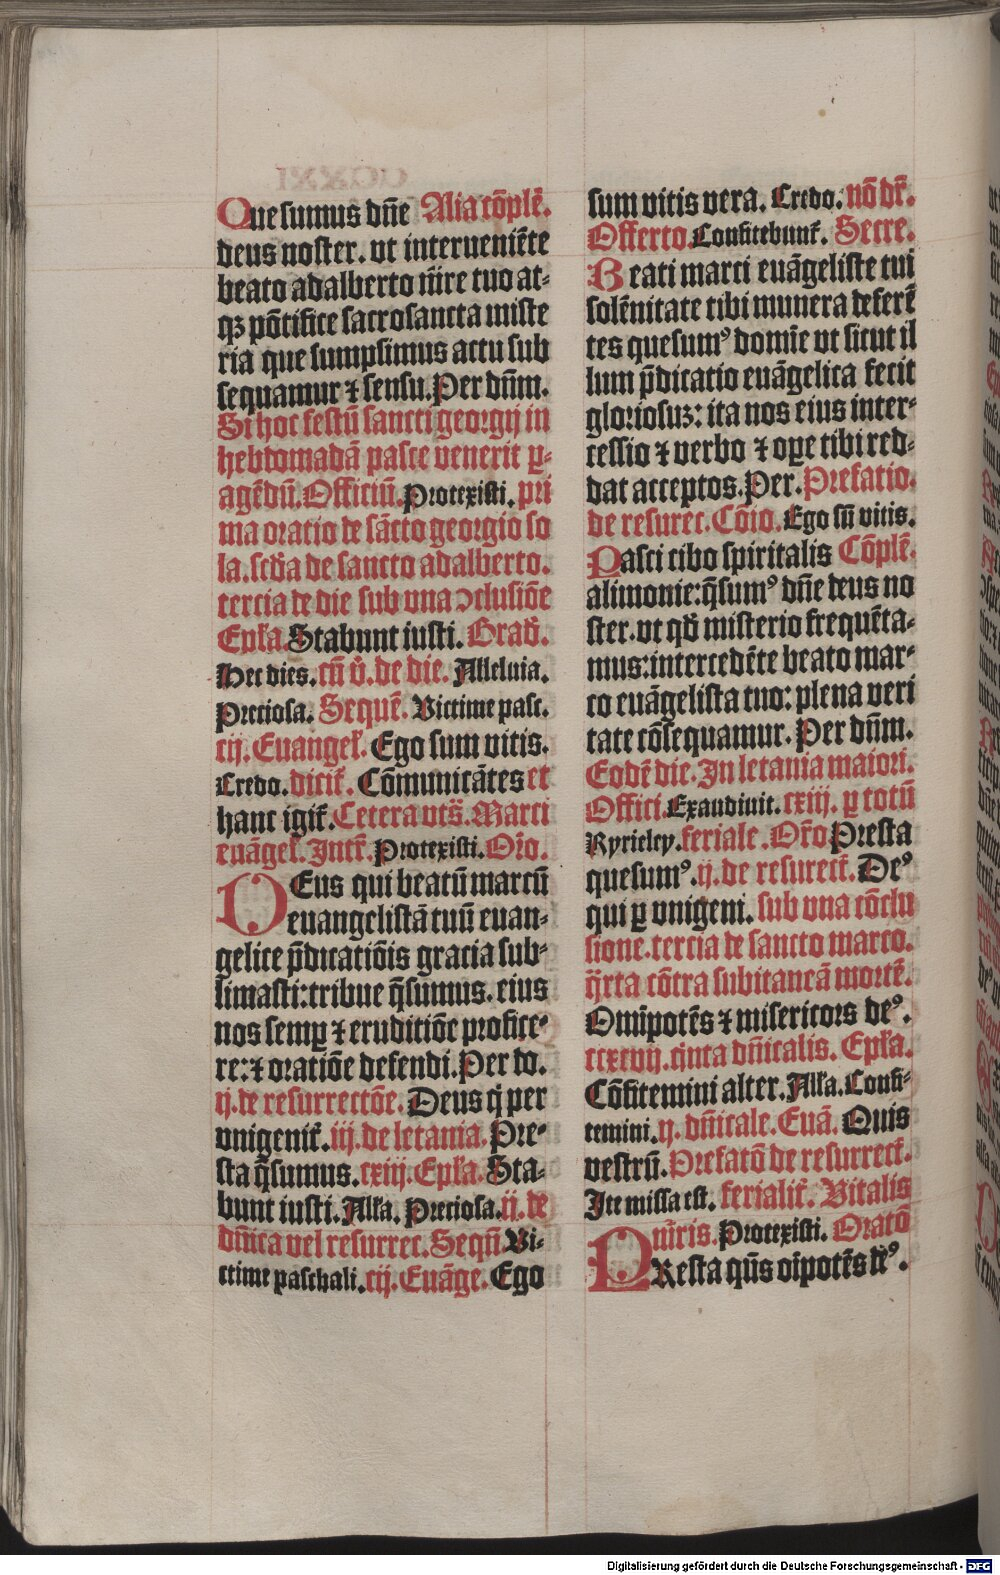 Quesumus dn̄e Alia cōplē.
deus noster. vt interueniēte
beato adalberto m̄re tuo at-
qȝ pōtifice sacrosancta miste
ria que sumpsimus actu sub
sequamur ⁊ sensu. Per dn̄m.
Si hoc festū sancti georgij in
hebdomadā pasce venerit ꝑ-
agēdū. Officiū. Protexisti. pri
ma oratio de sācto georgio so
la. scd̄a de sancto adalberto.
tercia de die sub vna ↄclusiōe
Epl̄a. Stabunt iusti. Grad̄.
Hec dies. cū v̄. de die. Alleluia.
Preciosa. Sequē. Victime pasc.
cij. Euangel̄. Ego sum vitis.
Credo. dicit̄. Cōmunicātes et
hanc igit̄. Cetera vts̄. Marci
euāgel̄. Intr̄. Protexisti. Or̄o.
DEus qui beatū marcū
euangelistā tuū euan-
gelice p̄dicatiōis gracia sub-
limasti: tribue q̄sumus. eius
nos semꝑ ⁊ eruditiōe profice-
re: ⁊ oratiōe defendi. Per do.
ij. de resurrectōe. Deus q̄ per
vnigenit̄. iij. de letania. Pre-
sta q̄sumus. cxiij. Epl̄a. Sta-
bunt iusti. All̄a. Preciosa. ij. de
dn̄ica vel resurrec. Seqū Vi-
ctime paschali. cij. Euāge. Ego
sum vitis vera. Credo. nō dr̄.
Offerto. Confitebunt̄. Secre.
Beati marci euāgeliste tui
solēnitate tibi munera deferē
tes quesumꝰ domīe vt sicut il
lum p̄dicatio euāgelica fecit
gloriosuȝ: ita nos eius inter-
cessio ⁊ verbo ⁊ oꝑe tibi red-
dat acceptos. Per. Prefatio.
de resurec. Cōio. Ego sū vitis.
Pasci cibo spiritalis Cōplē.
alimonie: q̄sumꝰ dn̄e deus no
ster. vt qd̄ misterio frequēta-
mus: intercedēte beato mar-
co euāgelista tuo: plena veri
tate cōsequamur. Per dn̄m.
Eodē die. In letania maiori.
Offici. Exaudiuit. cxiij. ꝑ totū
Kyrieley. feriale. Or̄o Presta
quesumꝰ. ij. de resurect̄. Deꝰ
qui ꝑ vnigeni. sub vna cōclu
sione. tercia de sancto marco.
q̄rta cōtra subitaneā mortē.
Omīpotēs ⁊ misericors deꝰ.
ccxcvij. q̄nta dn̄icalis. Epl̄a.
Cōfitemini alter. All̄a. Confi-
temini. ij. dn̄icale. Euā. Quis
vestrū. Prefatō de resurrect̄.
Ite missa est. ferialit̄. Vitalis
m̄ris. Protexisti. Oratō
PResta qūs oīpotēs dꝰ.